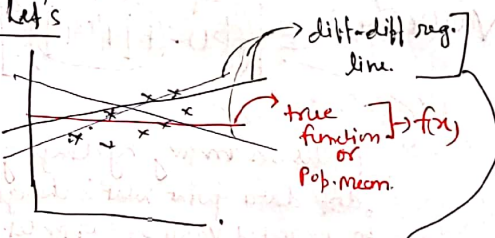 Let's
diff-diff reg.
line.
true
function → f(x)
or
Pop. mean.